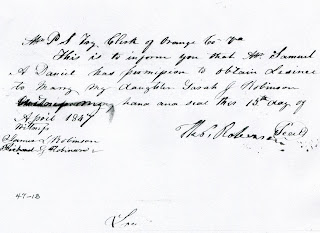 Mr P S Fry Clerk of Orange Co Va
This is to inform you that Mr Samuel
A Daniel has permission to obtain Lisence
to Marry My daughter Sarah J Robinson
my hand and seal this 15th day of
April 1847
Witness
Thos Robinson (Seal)
Samuel Robinson
J Robinson
47-18